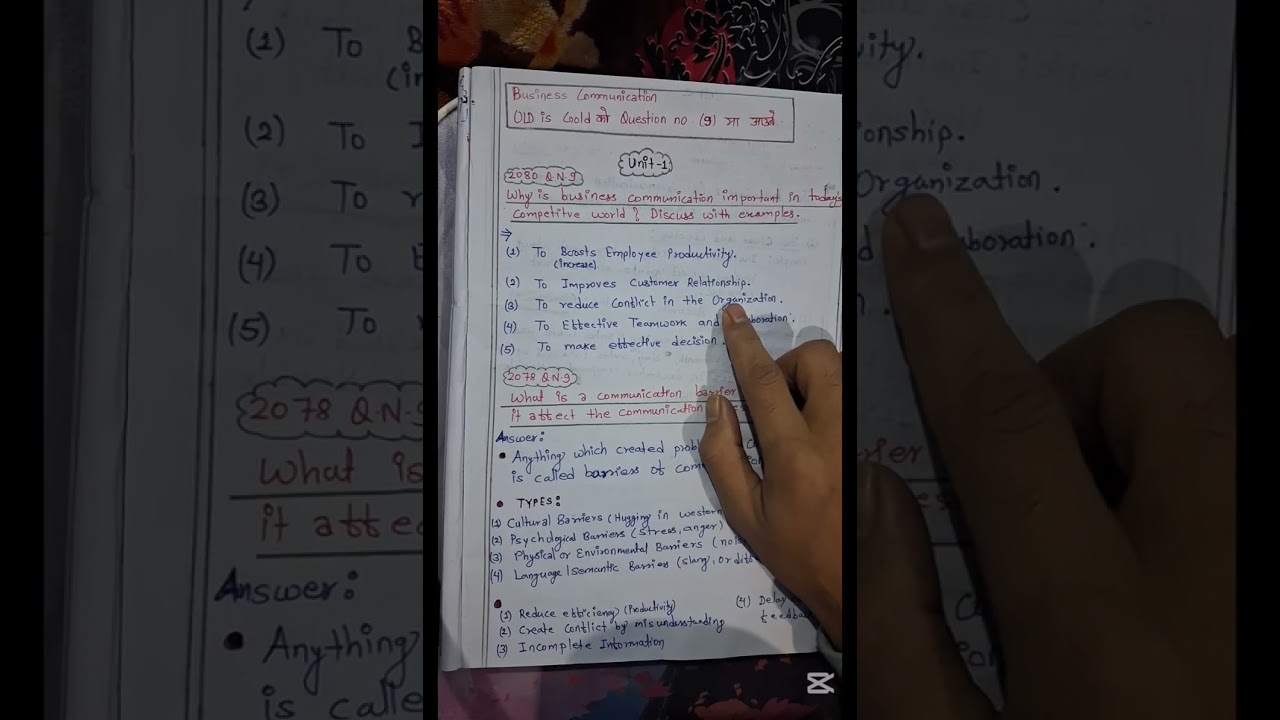 Business Communication
OLD is Gold को Question no (9) मा आउने
Unit-1
2080 Q.N.9
Why is business communication important in today's
competitve world? Discuss with examples.
⇒
(1) To Boosts Employee Productivity.
(increase)
(2) To Improves Customer Relationship.
(3) To reduce Conflict in the Organization.
(4) To Effective Teamwork and
(5) To make effective decision.
2078 Q.N.9
What is a communication barrier
it affect the communication
Answer:
• Anything which created
is called barriers of
• TYPES:
(1) Cultural Barriers (Hugging in western
(2) Psychological Barriers (stress, anger)
(3) Physical or Environmental Barriers
(4) Language/Semantic Barrier (slang, or
(1) Reduce efficiency (Productivity)
(2) Create Conflict by misunderstanding
(3) Incomplete Information
(4) Delay